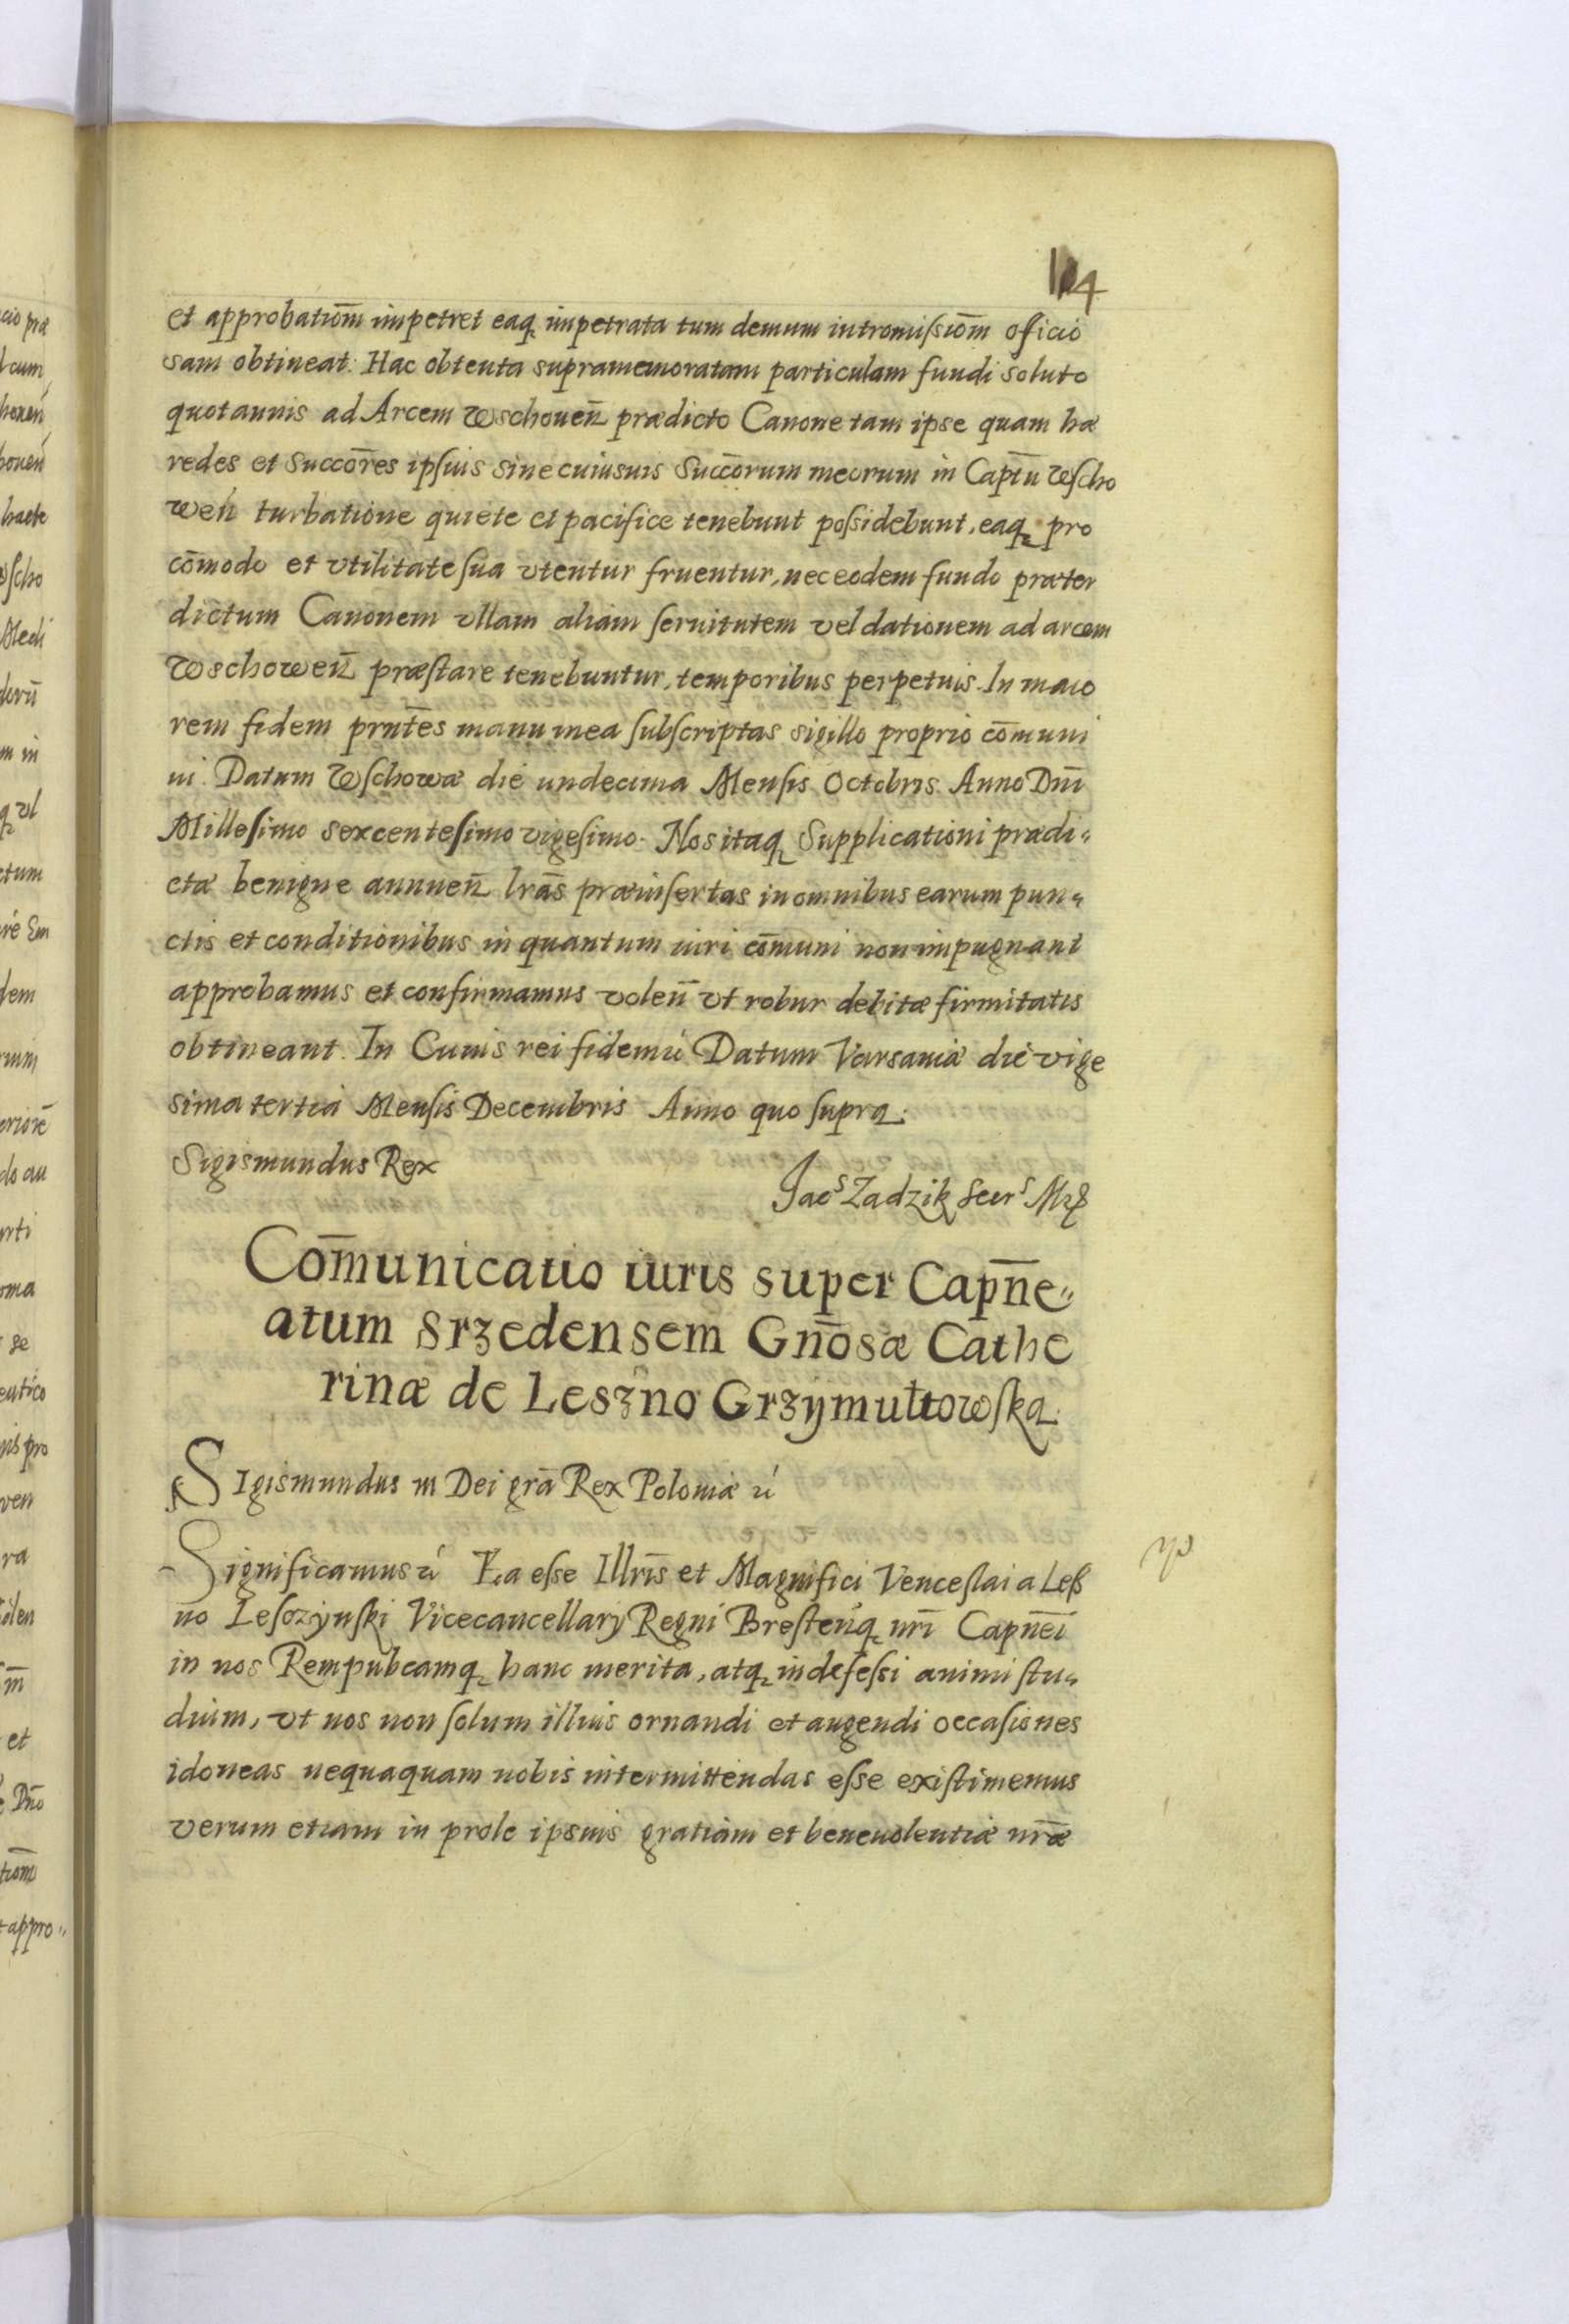 114
et approbatiōm impetret eaq₂ impetrata tum demum intromiſsiōm officio
sam obtineat. Hac obtenta supramemoratam particulam fundi soluto
quotannis ad Arcem Wschoueñ prædicto Canone tam ipse quam hæ
redes et succōres ipſius sine cuiusuis succōrum meorum in Capt̄u Wſcho
weñ turbatione quiete et pacifice tenebunt poſsidebunt, eaq₂ pro
cōmodo et vtilitate ſua vtentur fruentur, nec eodem fundo præter
dictum Canonem vllam aliam ſeruitutem vel dationem ad arcem
Wschoweñ præſtare tenebuntur, temporibus perpetuis. In maio
rem fidem prnt̄es manu mea ſubſcriptas sigillo proprio cōmuni
ui. Datum Wſchowæ die undecima Menſis Octobris Anno Dn̄i
Milleſimo sexcenteſimo vigeſimo. Nos itaq₂ Supplicationi prædi„
ctæ benigne annueñ lrās præinſertas in omnibus earum pun„
ctis et conditionibus in quantum iuri cōmuni non impugnant
approbamus et confirmamus voleñ vt robur debitæ firmitatis
obtineant. In Cuius rei fidem ú Datum Varsauiæ die vige
sima tertia Menſis Decembris Anno quo ſupra.
Sigismundus Rex
Jacs Zadzik Secrs
Com̄unicatio iuris super Capn̄e„
atum Srzedensem Gn̄osæ Cathe
rinæ de Leszno Grzÿmułtowſka.
SIgismundus III Dei grā Rex Poloniæ ú
Significamus ú Ea eſse Illrīs et Magnifici Venceſlai a Leß
no Leſczÿnſki Vicecancellarÿ Regni Breſteñq₂ nr̄i Capn̄ei
in nos Rempubcamq₂ hanc merita, atq₂ indefeſsi animi ſtu„
dium, vt nos non ſolum illius ornandi et augendi occaſiones
idoneas nequaquam nobis intermittendas eſse exiſtimemus
verum etiam in prole ipsius gratiam et beneuolentiæ nr̄æ